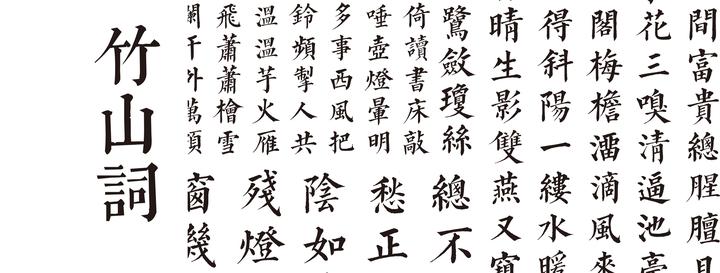 間富貴總腥膻
花三嗅清逼池亭
閣梅檐溜滴風來
得斜陽一縷水暖
晴生影雙燕又窺
鷺斂瓊絲
倚讀書床敲
唾壺燈暈明
多事西風把
鈴頻掣人共
溫溫芋火雁
飛蕭蕭檜雪
闌干外萬頃
總不
愁正
陰如
殘燈
窗幾
竹山詞